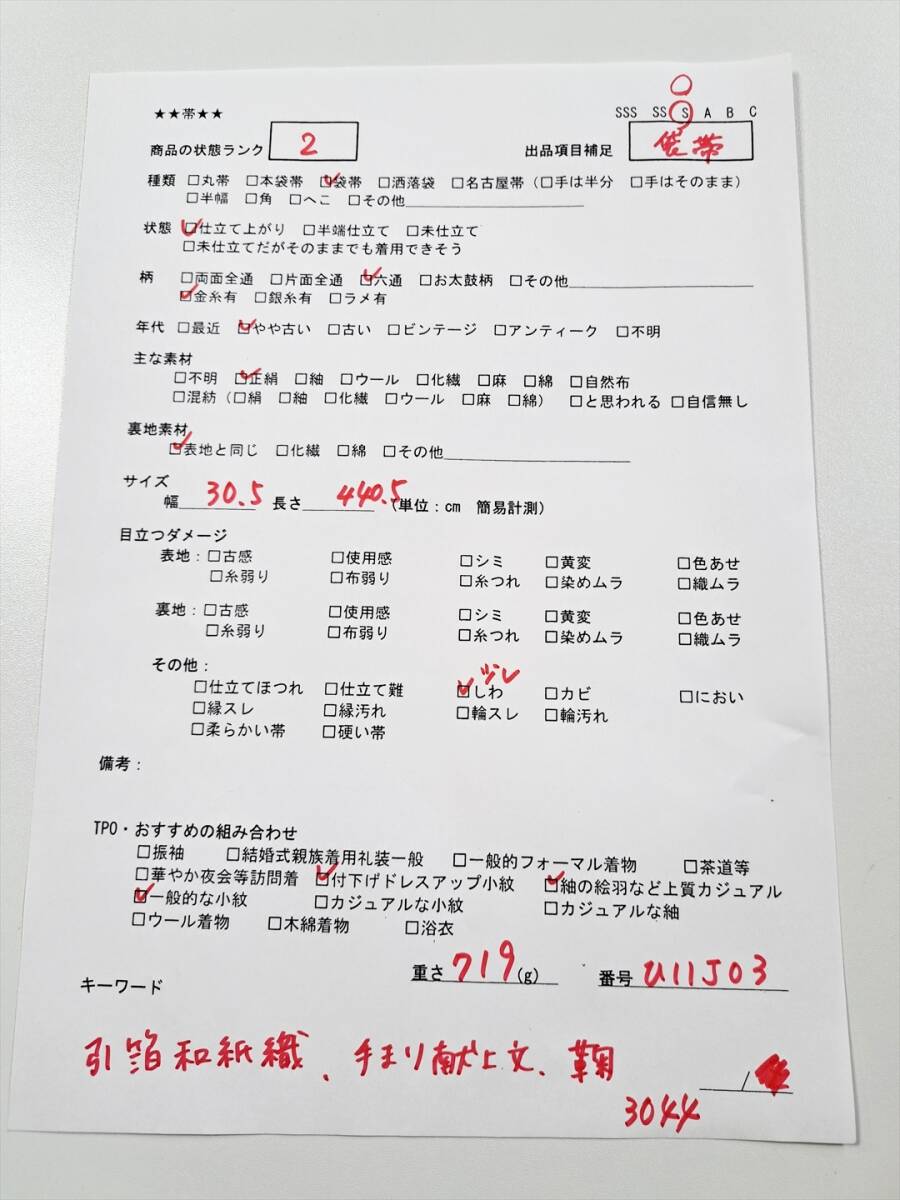 ★★帯★★
SSS SS S A B C
商品の状態ランク 2 出品項目補足 袋帯
種類 □丸帯 □本袋帯 ☑袋帯 □洒落袋 □名古屋帯(□手は半分 □手はそのまま)
□半幅 □角 □へこ □その他
状態 ☑仕立て上がり □半端仕立て □未仕立て
□未仕立てだがそのままでも着用できそう
柄 □両面全通 □片面全通 ☑六通 □お太鼓柄 □その他
☑金糸有 □銀糸有 □ラメ有
年代 □最近 ☑やや古い □古い □ビンテージ □アンティーク □不明
主な素材
□不明 ☑正絹 □紬 □ウール □化繊 □麻 □綿 □自然布
□混紡(□絹 □紬 □化繊 □ウール □麻 □綿) □と思われる □自信無し
裏地素材
☑表地と同じ □化繊 □綿 □その他
サイズ
幅 30.5 長さ 440.5 (単位:cm 簡易計測)
目立つダメージ
表地:□古感 □使用感 □シミ □黄変 □色あせ
□糸弱り □布弱り □糸つれ □染めムラ □織ムラ
裏地:□古感 □使用感 □シミ □黄変 □色あせ
□糸弱り □布弱り □糸つれ □染めムラ □織ムラ
その他:
□仕立てほつれ □仕立て難 ☑しわ □カビ □におい
□縁スレ □縁汚れ □輪スレ □輪汚れ
□柔らかい帯 □硬い帯
備考:
TPO・おすすめの組み合わせ
□振袖 □結婚式親族着用礼装一般 □一般的フォーマル着物 □茶道等
□華やか夜会等訪問着 ☑付下げドレスアップ小紋 ☑紬の絵羽など上質カジュアル
☑一般的な小紋 □カジュアルな小紋 □カジュアルな紬
□ウール着物 □木綿着物 □浴衣
重さ 719 (g) 番号 U11J03
キーワード
引箔和紙織、手まり献上文、鞠
/
3044